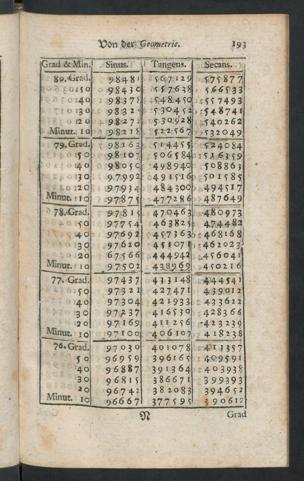 Von der Geometrie. 193
Grad & Min. Sinus. Tangens. Secans.
80. Grad. 98481 567129 575877
50 98430 557638 566533
40 98378 548450 557493
30 548741
20 98271 530928 540262
Minut. 10 98218 522567 532049
79. Grad. 98163 514455 524084
50 98107 506584 516359
40 98050 498940 508863
30 97992 491516 501585
20 97934 484300 494517
Minut. 10 97875 477286 487649
78. Grad. 97815 470463 480973
50 97754 463825 474482
40 97692 457363 468168
30 97620 451071 462023
20 67566 444942 456041
Minut. 10 97502 428969 450216
77. Grad. 97437 413148 444541
50 97371 427471 439012
40 97304 421933 433622
30 97237 416530 428366
20 97169 411256 423239
Minut. 10 97100 406107 418238
76. Grad. 97030 401078 413357
50 96959 396165 409591
40 96887 391364 403938
30 96815 386671 399393
20 96742 382083 394652
Minut. 10 96667 377595 390612
N Grad